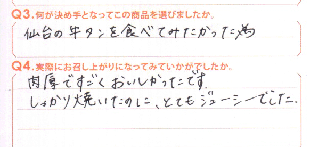 Q3.何が決め手となってこの商品を選びましたか。
仙台の牛タンを食べてみたかった為
Q4.実際にお召し上がりになってみていかがでしたか。
肉厚ですごくおいしかったです。
しっかり焼いたのに、とてもジューシーでした。